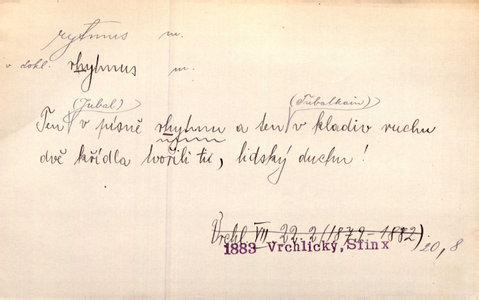 rytmus m.
v dokl. rhytmus m.
(Jubal) (Tubalkain)
Ten v písně rhytmu a ten v kladiv ruchu
dvě křídla tvořili ti, lidský duchu!
Vrchl VII. 22. 2 (1879–1882)
1883 Vrchlický, Sfinx 20, 8